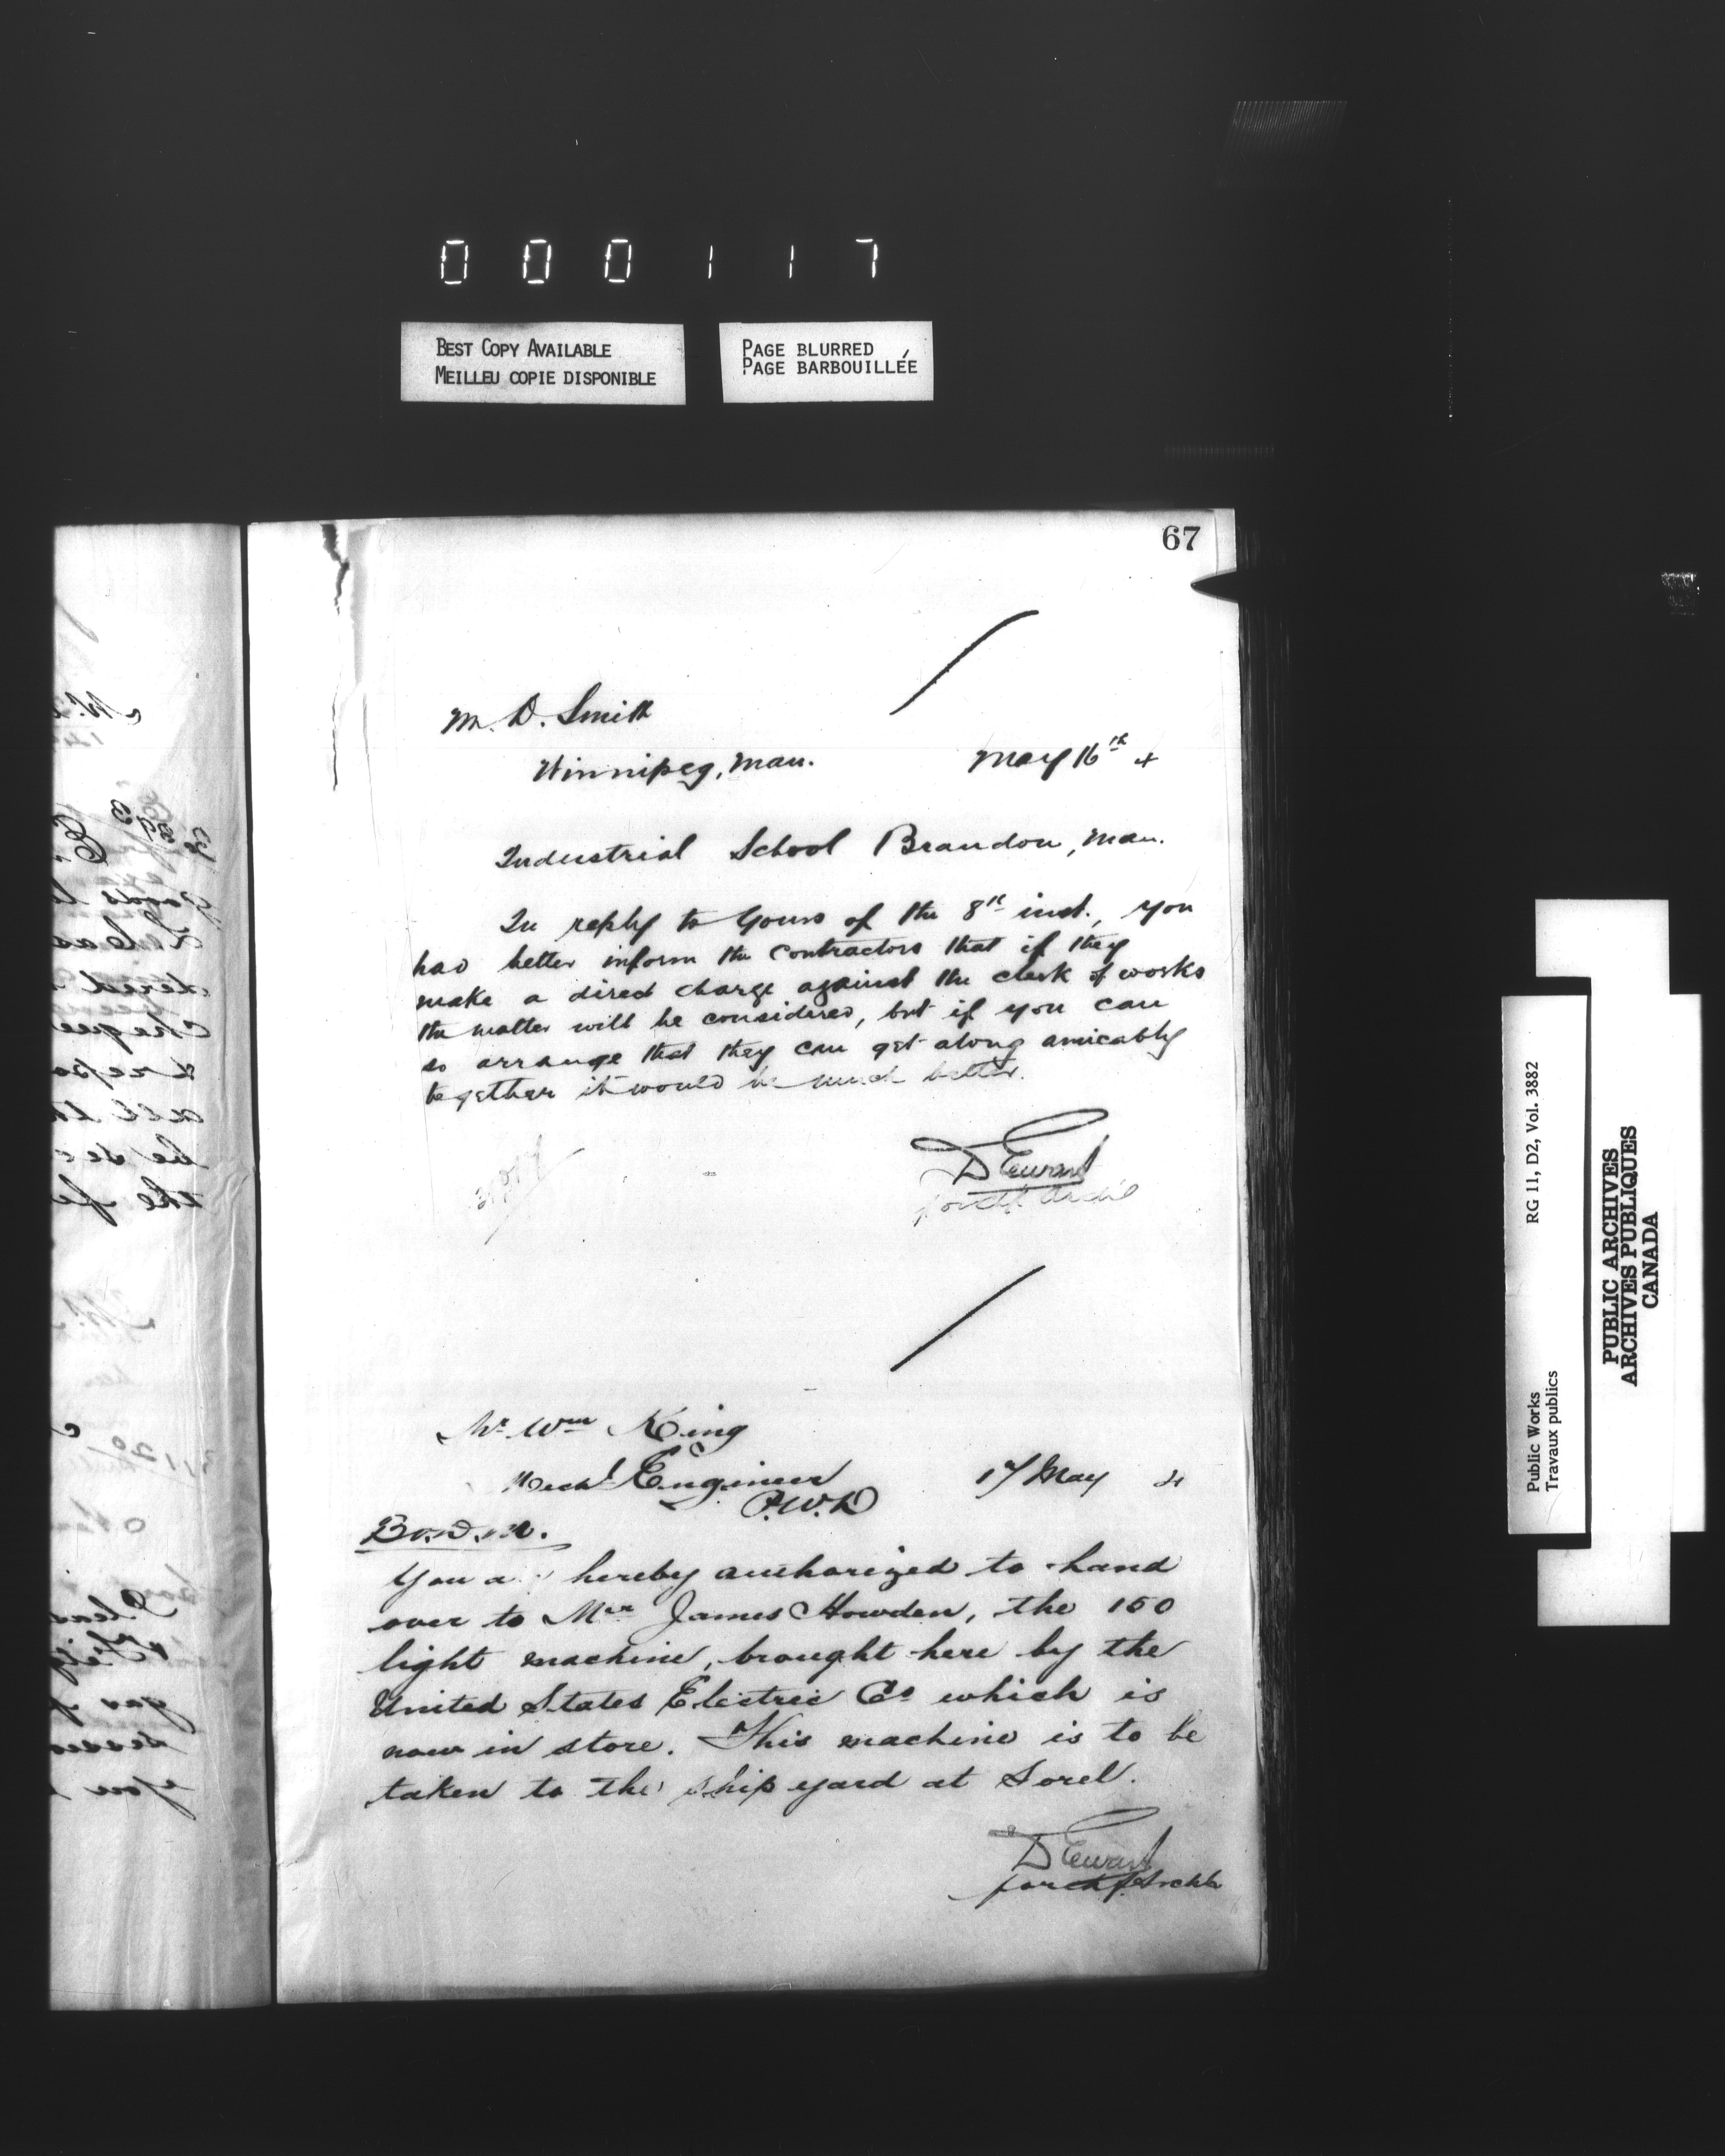 000117
BEST COPY AVAILABLE
MEILLEU COPIE DISPONIBLE
PAGE BLURRED
PAGE BARBOUILLÉE
67
M. D. Smith
Winnipeg, Man.
May 16th 4
Industrial School Brandon, Man.
In reply to yours of the 8th inst., you
had better inform the contractors that if they
make a direct charge against the clerk of works
the matter will be considered, but if you can
so arrange that they can get along amicably
together it would be much better.
D Ewart
Mr. Wm King
Mechl Engineer
P.W.D
17 May 4
You a hereby authorized to hand
over to Mr James Howden, the 150
light machine, brought here by the
United States Electric Co which is
now in store. This machine is to be
taken to the ship yard at Sorel.
D Ewart
for chf. Archt
Public Works
Travaux publics
RG 11, D2, Vol. 3882
PUBLIC ARCHIVES
ARCHIVES PUBLIQUES
CANADA